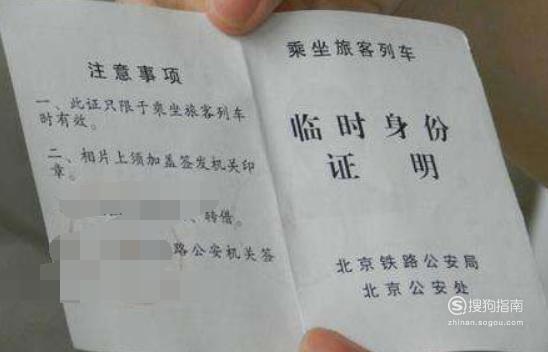 注意事项
一、此证只限于乘坐旅客列车
时有效。
二、相片上须加盖签发机关印
章。
、转借。
路公安机关签
乘坐旅客列车
临时身份
证明
北京铁路公安局
北京公安处
搜狗指南
zhinan.sogou.com